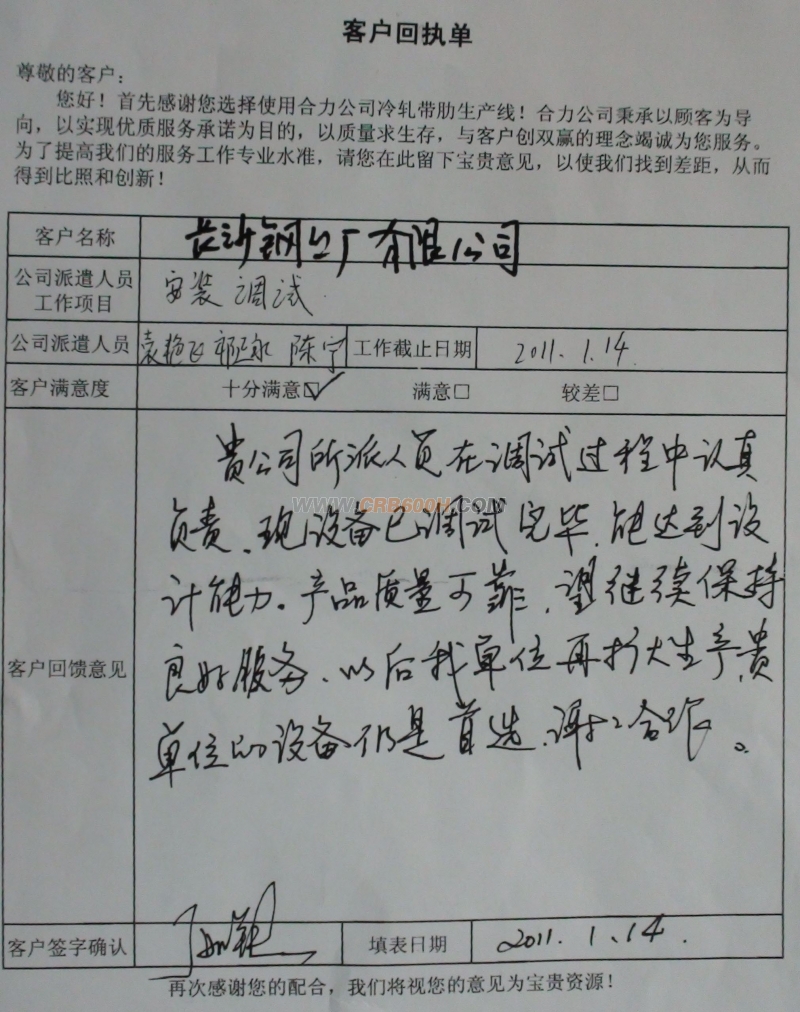 客户回执单
尊敬的客户：
您好！首先感谢您选择使用合力公司冷轧带肋生产线！合力公司秉承以顾客为导
向，以实现优质服务承诺为目的，以质量求生存，与客户创双赢的理念竭诚为您服务。
为了提高我们的服务工作专业水准，请您在此留下宝贵意见，以使我们找到差距，从而
得到比照和创新！
客户名称 长沙钢厂有限公司
公司派遣人员
工作项目 安装调试
公司派遣人员 袁艳飞 陈宁 工作截止日期 2011.1.14
客户满意度 十分满意☑ 满意□ 较差□
客户回馈意见
贵公司所派人员在调试过程中认真
负责、现设备已调试完毕，能达到设
计能力。产品质量可靠，望继续保持
良好服务、以后我单位再扩大生产，贵
单位的设备仍是首选，谢谢合作。
WWW.CRB600H.COM
客户签字确认 填表日期 2011.1.14.
再次感谢您的配合，我们将视您的意见为宝贵资源！